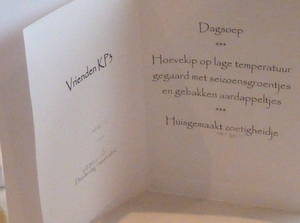 Vrienden KP's
Dagsoep
***
Hoevekip op lage temperatuur
gegaard met seizoensgroentjes
en gebakken aardappeltjes
***
Huisgemaakt zoetigheidje